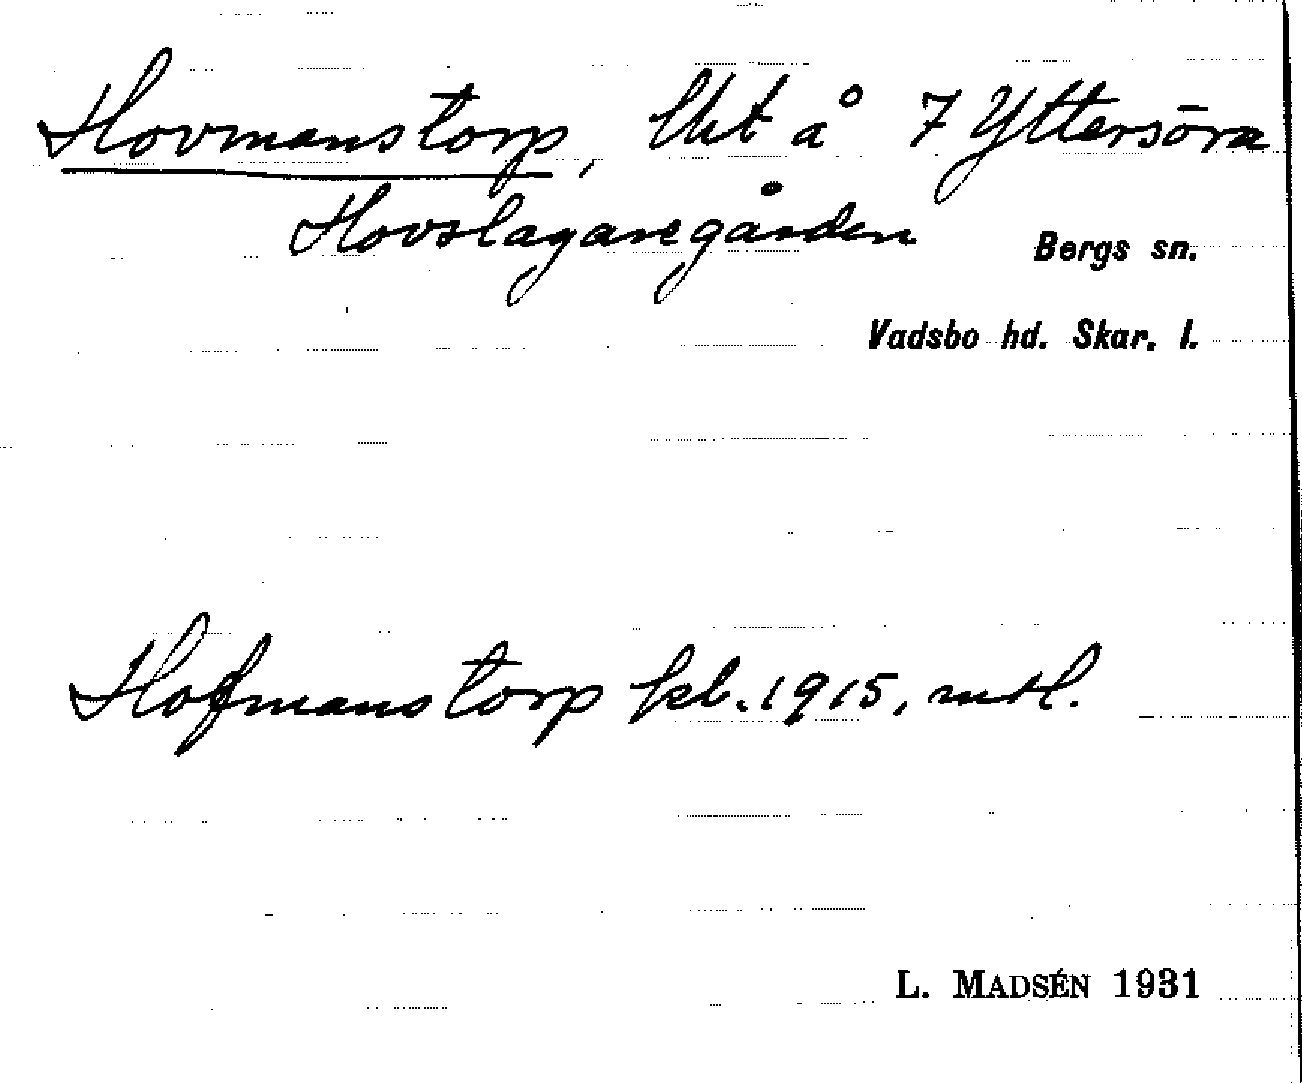 Hovmanstorp, lht å 7 Yttersöra
Hovslagaregården
Bergs sn.
Vadsbo hd. Skar. l.
Hofmanstorp kb. 1915, mtl.
L. MADSÉN 1931